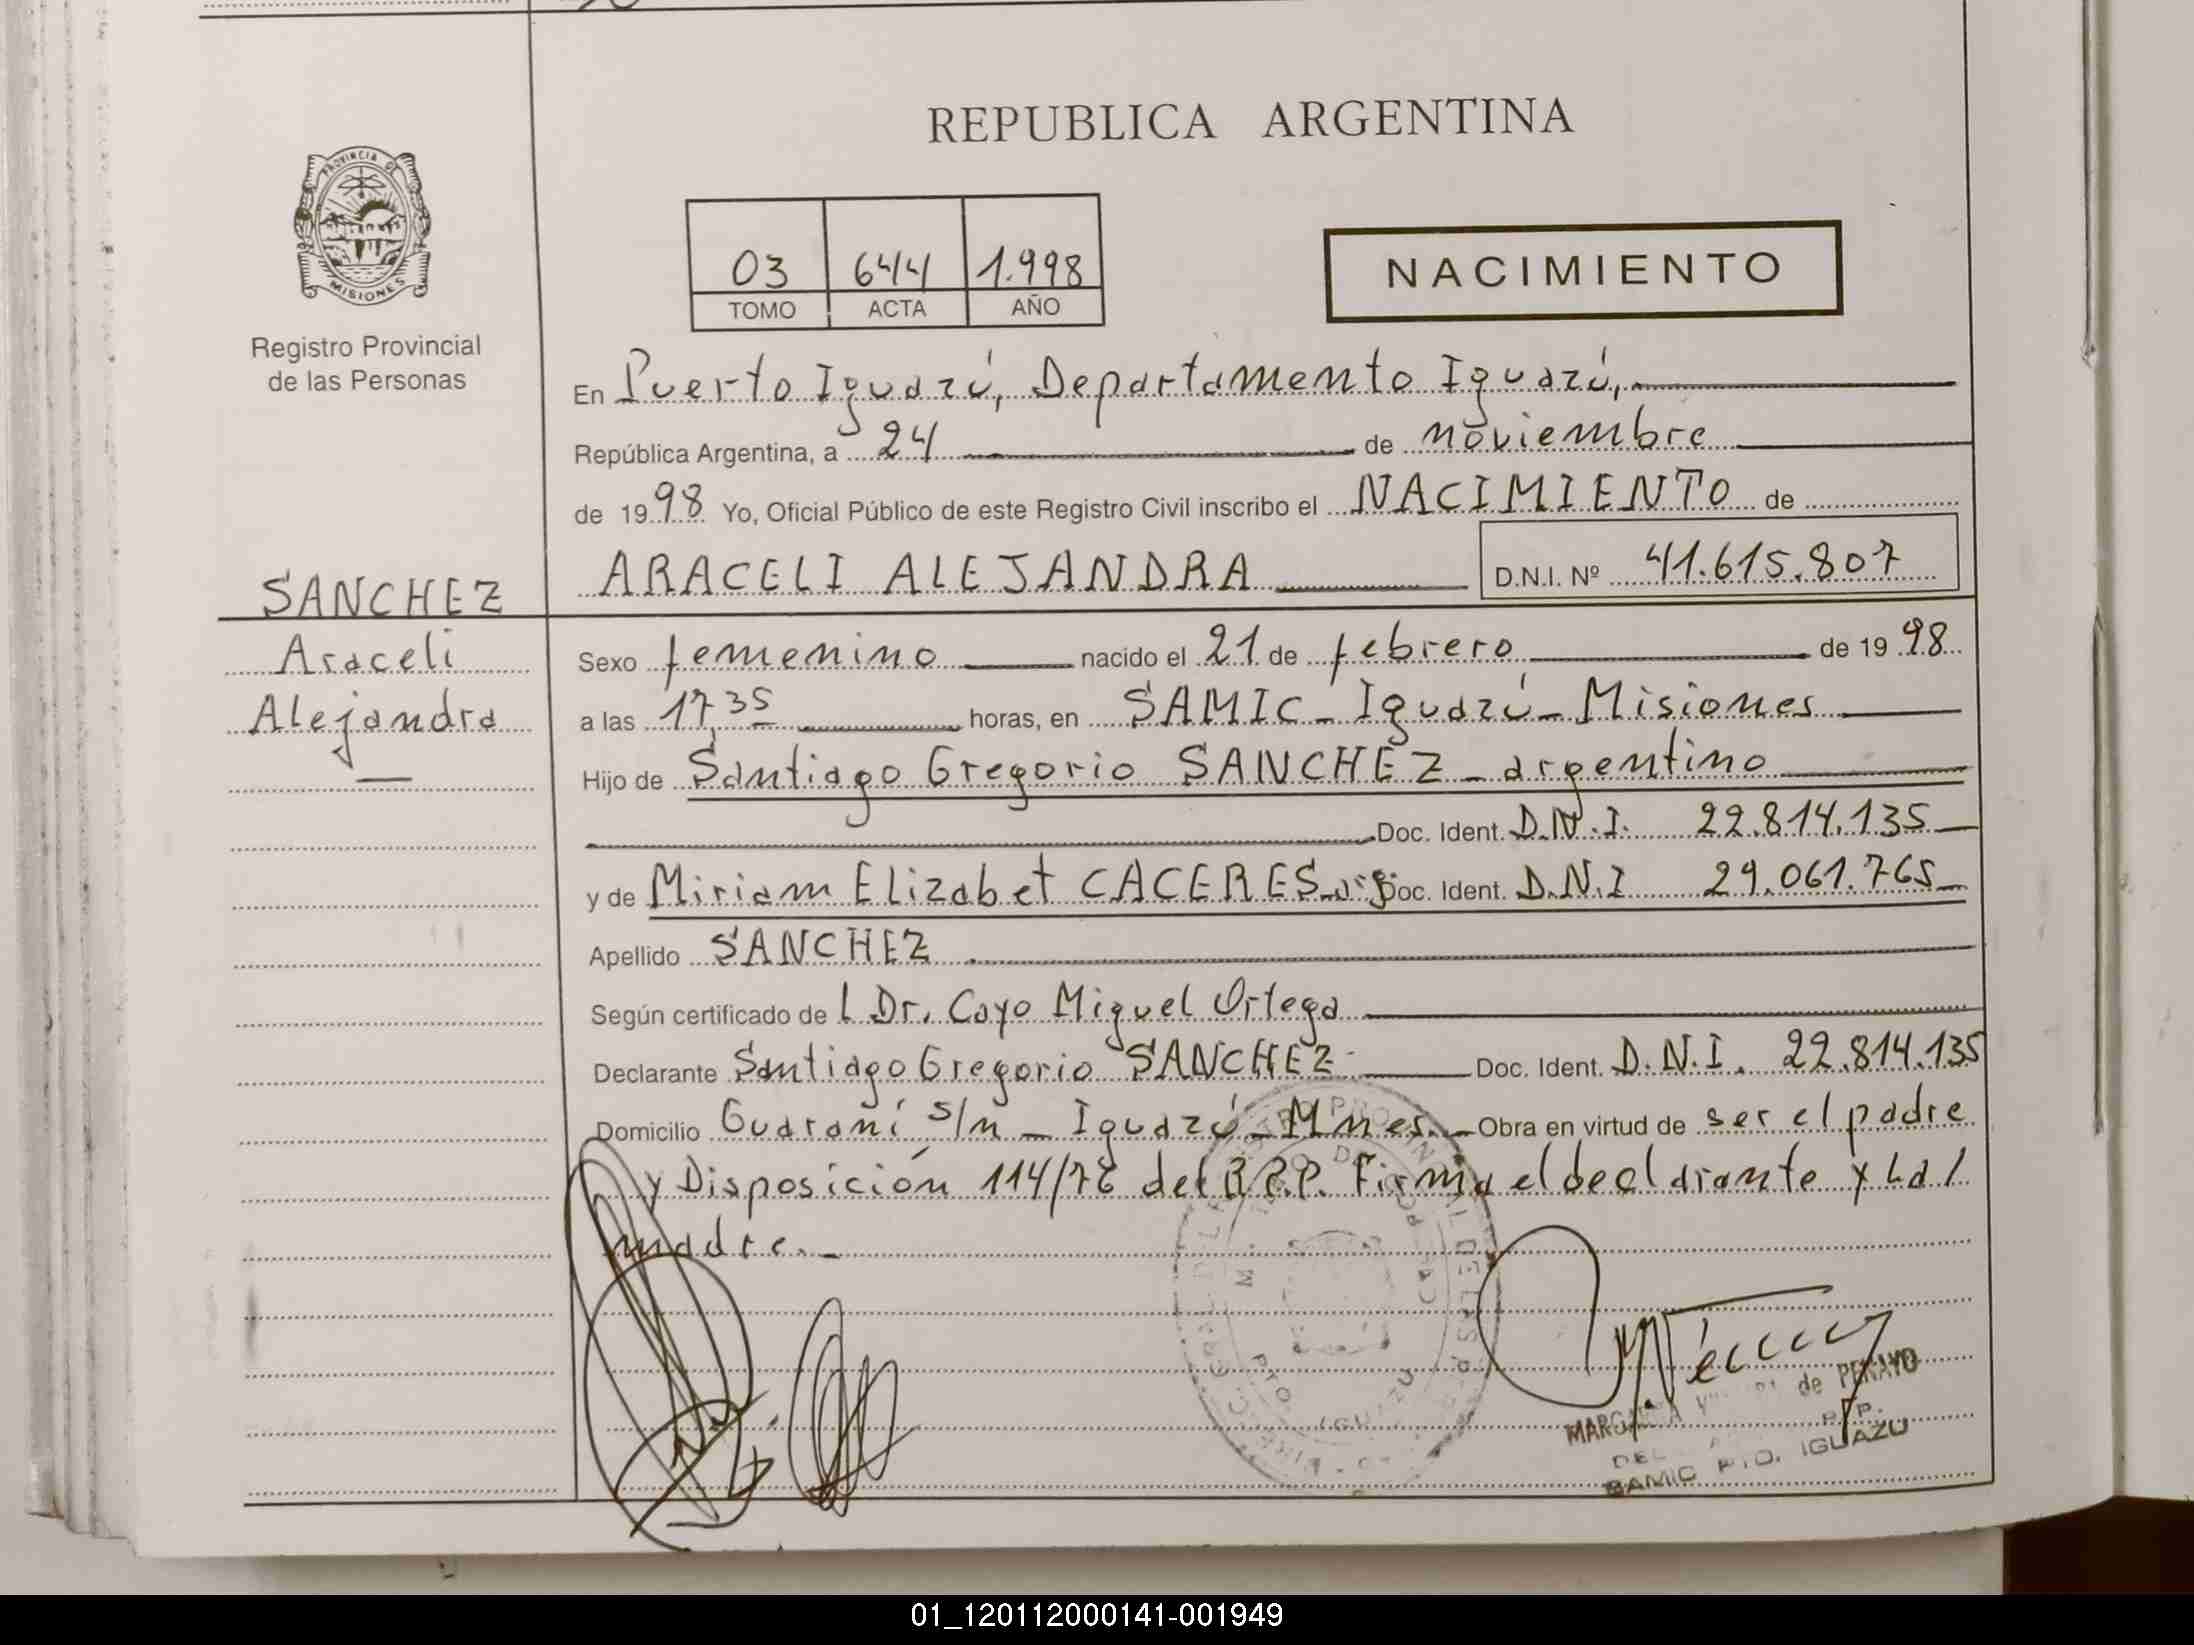 REPUBLICA ARGENTINA
PROVINCIA DE
MISIONES
Registro Provincial
de las Personas
03 644 1.998
TOMO ACTA AÑO
NACIMIENTO
En Puerto Iguazú, Departamento Iguazú,
República Argentina, a 24 de noviembre
de 1998 Yo, Oficial Público de este Registro Civil inscribo el NACIMIENTO de
ARACELI ALEJANDRA D.N.I. Nº 41.615.807
SANCHEZ
Araceli
Alejandra
Sexo femenino nacido el 21 de febrero de 1998
a las 17,35 horas, en SAMIC - Iguazú - Misiones
Hijo de Santiago Gregorio SANCHEZ - argentino
Doc. Ident. D.N.I. 22.814.135
y de Miriam Elizabet CACERES - arg. Doc. Ident. D.N.I 29.061.765
Apellido SANCHEZ
Según certificado del Dr. Cayo Miguel Ortega
Declarante Santiago Gregorio SANCHEZ Doc. Ident. D.N.I. 22.814.135
Domicilio Guaraní s/n - Iguazú - Mnes. Obra en virtud de ser el padre
y Disposición 114/76 del R.P.P. Firma el declarante y la
madre.-
de PENAYO
SAMIC PTO. IGUAZU
01_120112000141-001949